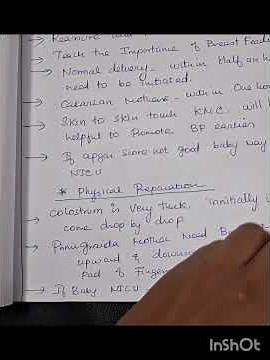 → Remove
→ Teach the Importance of Breast Feed
→ Normal delivery - within Half an h
need to be initiated.
→ Cesarean Mothers - within One hou
→ Skin to skin touch KMC will
helpful to Promote BF earlier
→ If apgar score not good baby may
NICU
* Physical Preparation
→ colostrum is very thick, initially
come drop by drop
→ Primigravida Mother Need B
upward & downw
Pad of finger
→ If Baby NICU
InShOt